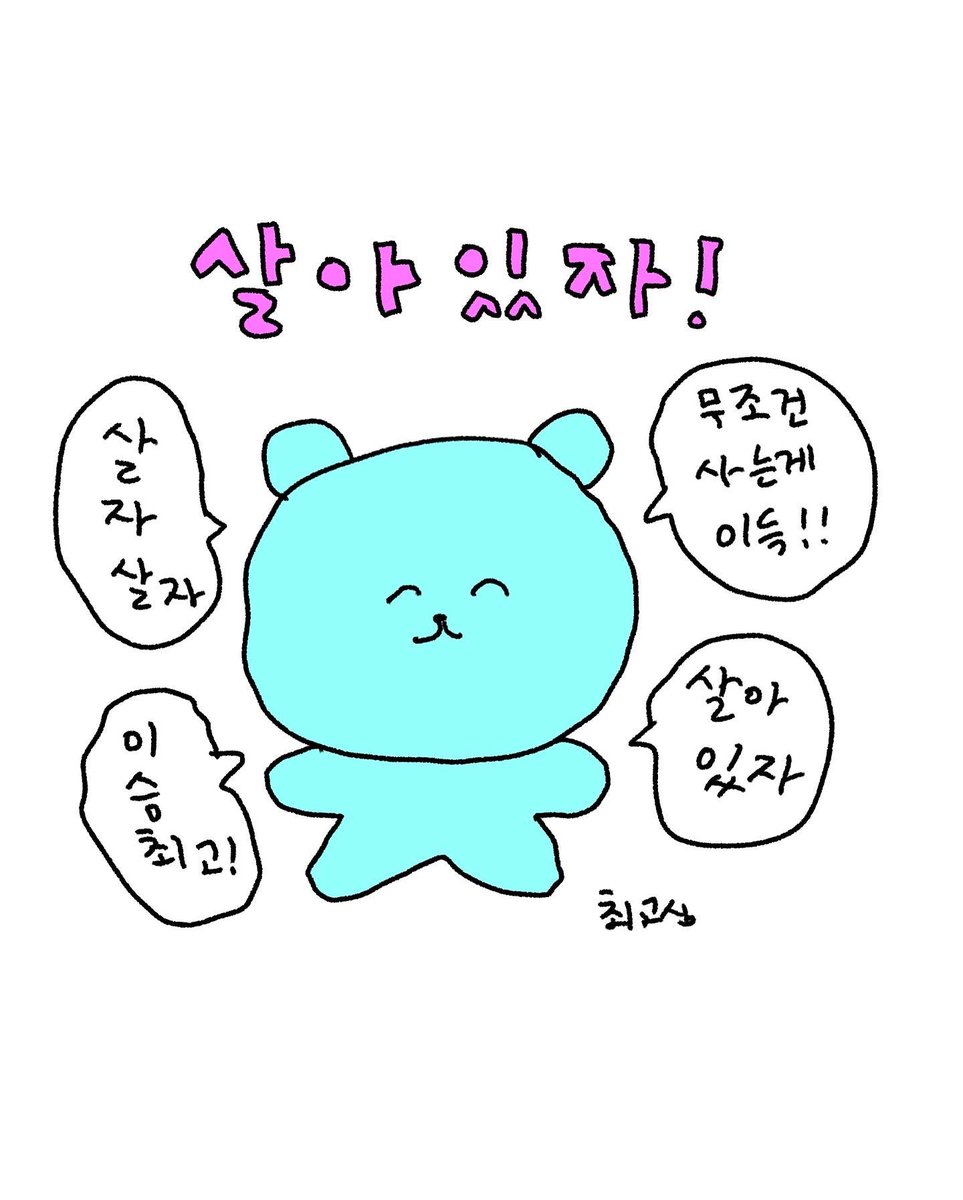 살아있자!
살
자
살자
무조건
사는게
이득!!
이
승
최고!
살아
있자
최고심